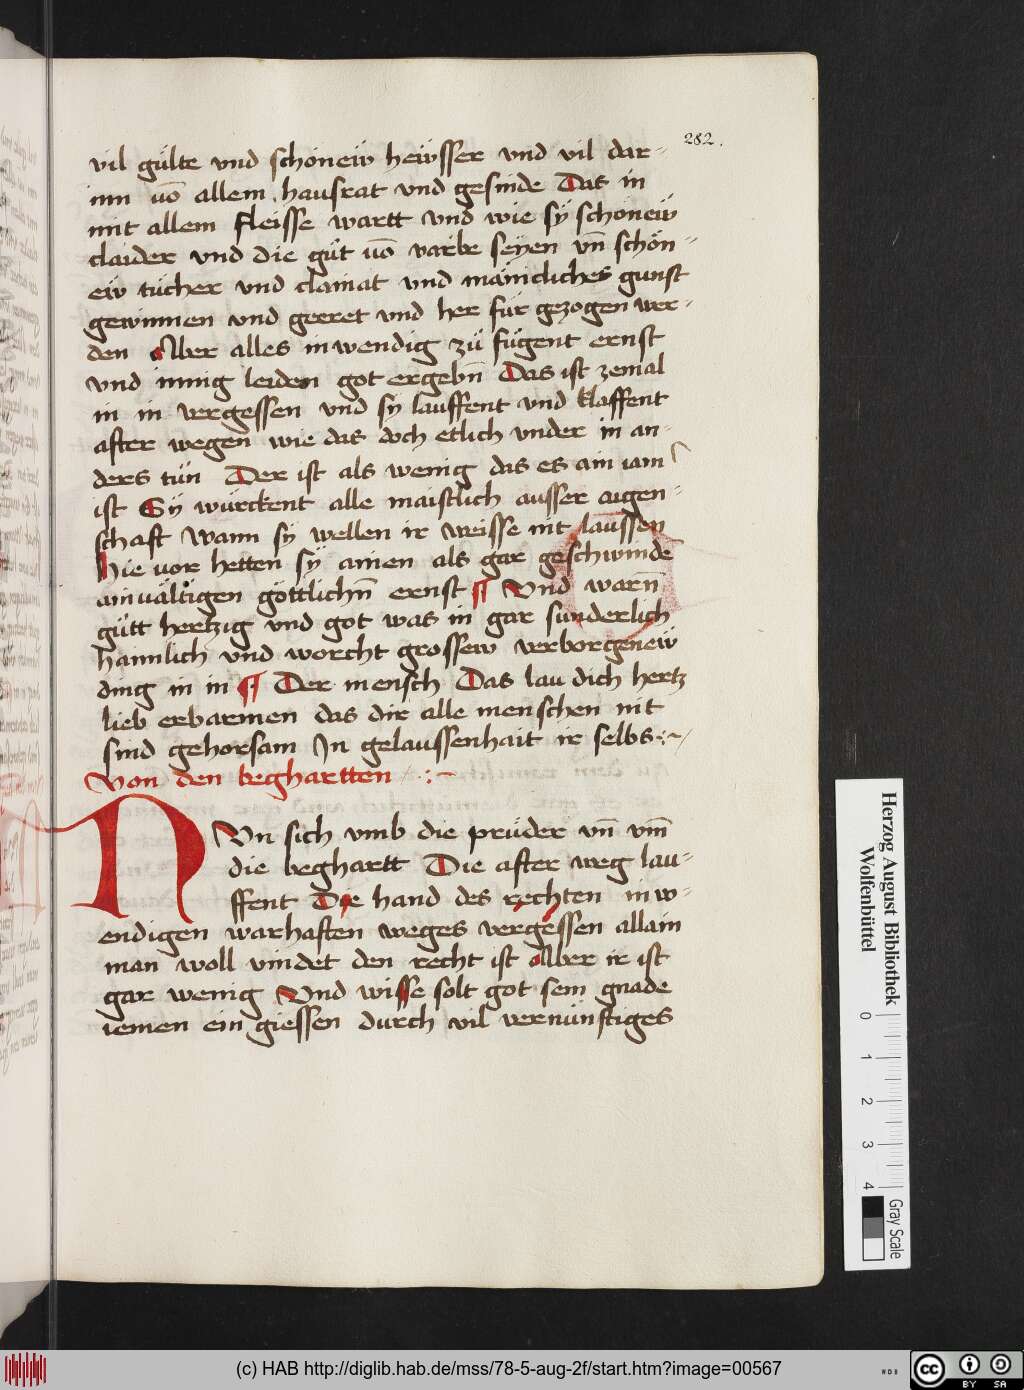 282.
vil gülte vnd schönew hewsser vnd vil dar-
inn võ allem hausrat vnd gesinde Das in
mit allem fleisse wartt vnd wie sÿ schönew
claider vnd die güt võ varbe seyen vñ schön-
ew tücher vnd clainat vnd mäniclichs gunst
gewinnen vnd geeret vnd her für gezogen wer-
den Aber alles inwendig zü fügent ernst
vnd innig leiden got ergebñ Das ist zemal
in in vergessen vnd sy lauffent vnd klaffent
after wegen wie das doch etlich vnder in an-
ders tün Der ist als wenig das es ain iam
ist Sy würckent alle maistlich ausser aigen-
schaft Wann sy wellen ir weisse nit laussen
hie vor hetten sÿ ainen als gar geschwinde
ainvältigen göttlichñ ernst ¶ Vnd warñ
gütt hertzig vnd got was in gar sunderlich
haimlich vnd worcht grossew verborgenew
ding in in ¶ Der mensch Das lau dich hertz
lieb erbarmen das dir alle menschen nit
sind gehorsam In gelaussenhait ir selbs :~
Von den beghartten :~
NVn sich vmb die prüder vñ vm̃
die beghartt Die after weg lau-
ffent Die hand des rechten inw-
endigen warhaften weges vergessen allain
man woll vindet den recht ist Aber ir ist
gar wenig Vnd wisse solt got sein gnade
iemen ein giessen durch vil vernünftiges
Herzog August Bibliothek
Wolfenbüttel
0 1 2 3 4
Gray Scale
(c) HAB http://diglib.hab.de/mss/78-5-aug-2f/start.htm?image=00567
cc BY SA